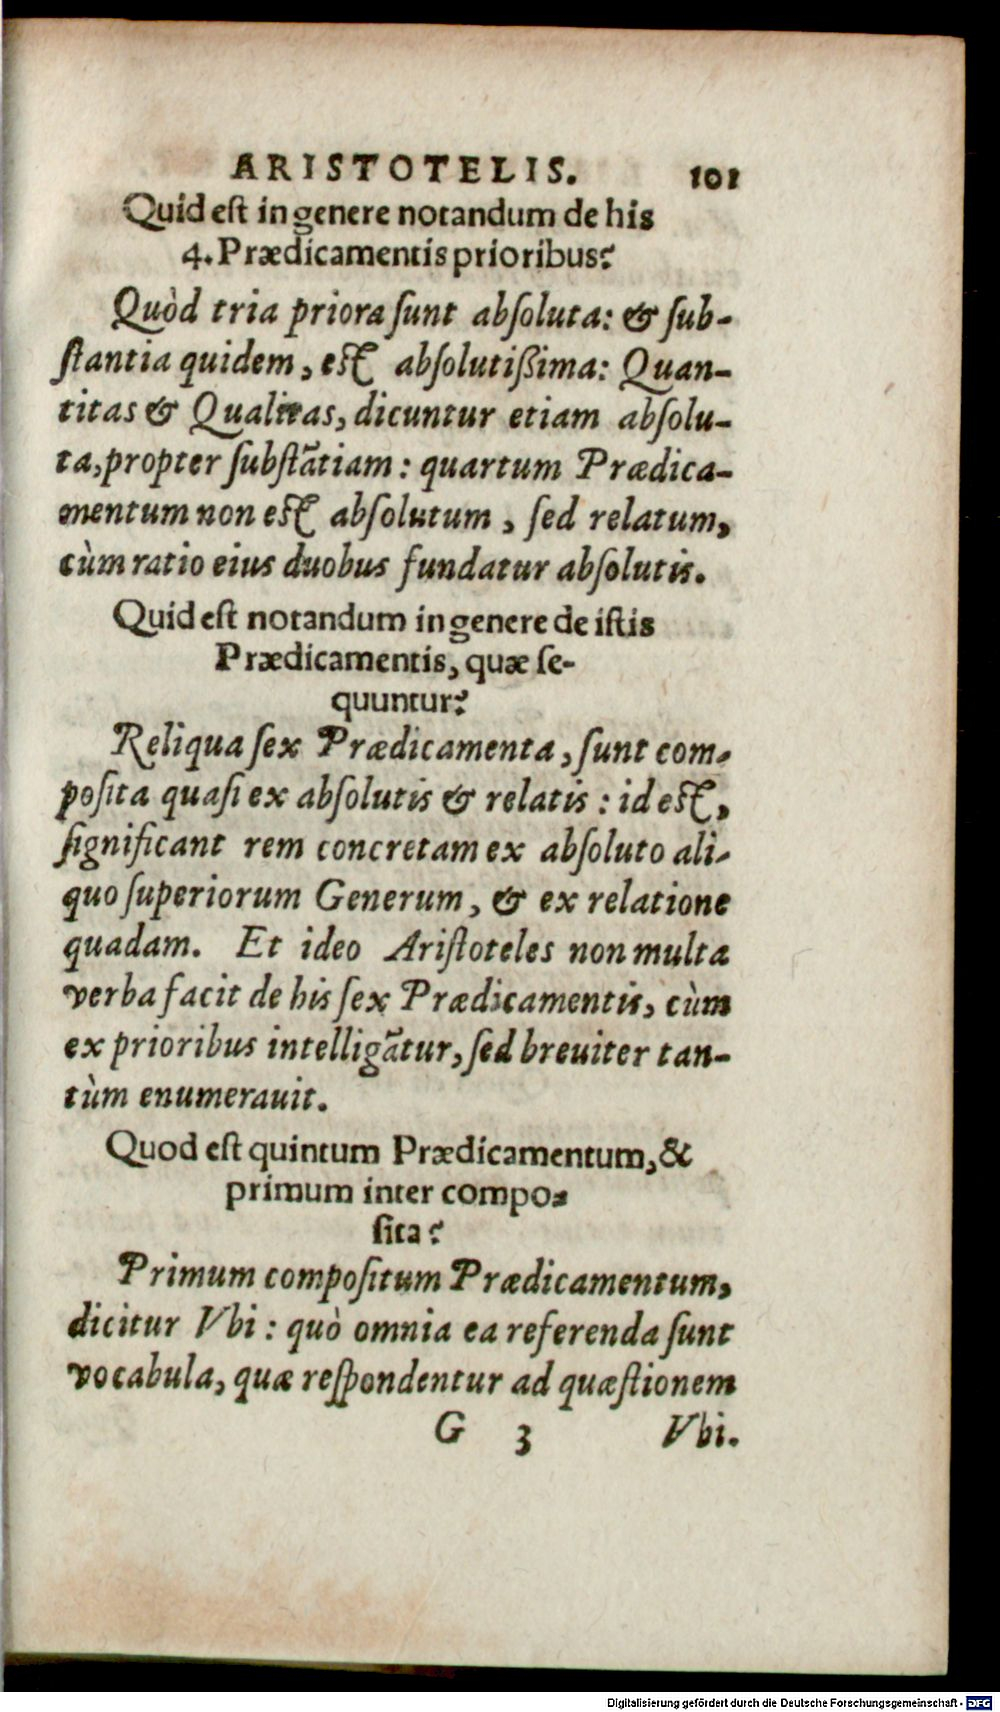 ARISTOTELIS. 101
Quid est in genere notandum de his
4. Prædicamentis prioribus?
Quòd tria priora ſunt abſoluta: & ſub-
ſtantia quidem, est abſolutißima: Quan-
titas & Qualitas, dicuntur etiam abſolu-
ta, propter ſubſtãtiam: quartum Prædica-
mentum non est abſolutum, ſed relatum,
cùm ratio eius duobus fundatur abſolutis.
Quid est notandum in genere de iſtis
Prædicamentis, quæ ſe-
quuntur?
Reliqua ſex Prædicamenta, ſunt com-
poſita quaſi ex abſolutis & relatis: id est,
ſignificant rem concretam ex abſoluto ali-
quo ſuperiorum Generum, & ex relatione
quadam. Et ideo Ariſtoteles non multa
verba facit de his ſex Prædicamentis, cùm
ex prioribus intelligãtur, ſed breuiter tan-
tùm enumerauit.
Quod eſt quintum Prædicamentum, &
primum inter compo-
ſita?
Primum compoſitum Prædicamentum,
dicitur Vbi: quò omnia ea referenda ſunt
vocabula, quæ reſpondentur ad quæſtionem
G 3 Vbi.
Digitalisierung gefördert durch die Deutsche Forschungsgemeinschaft - DFG